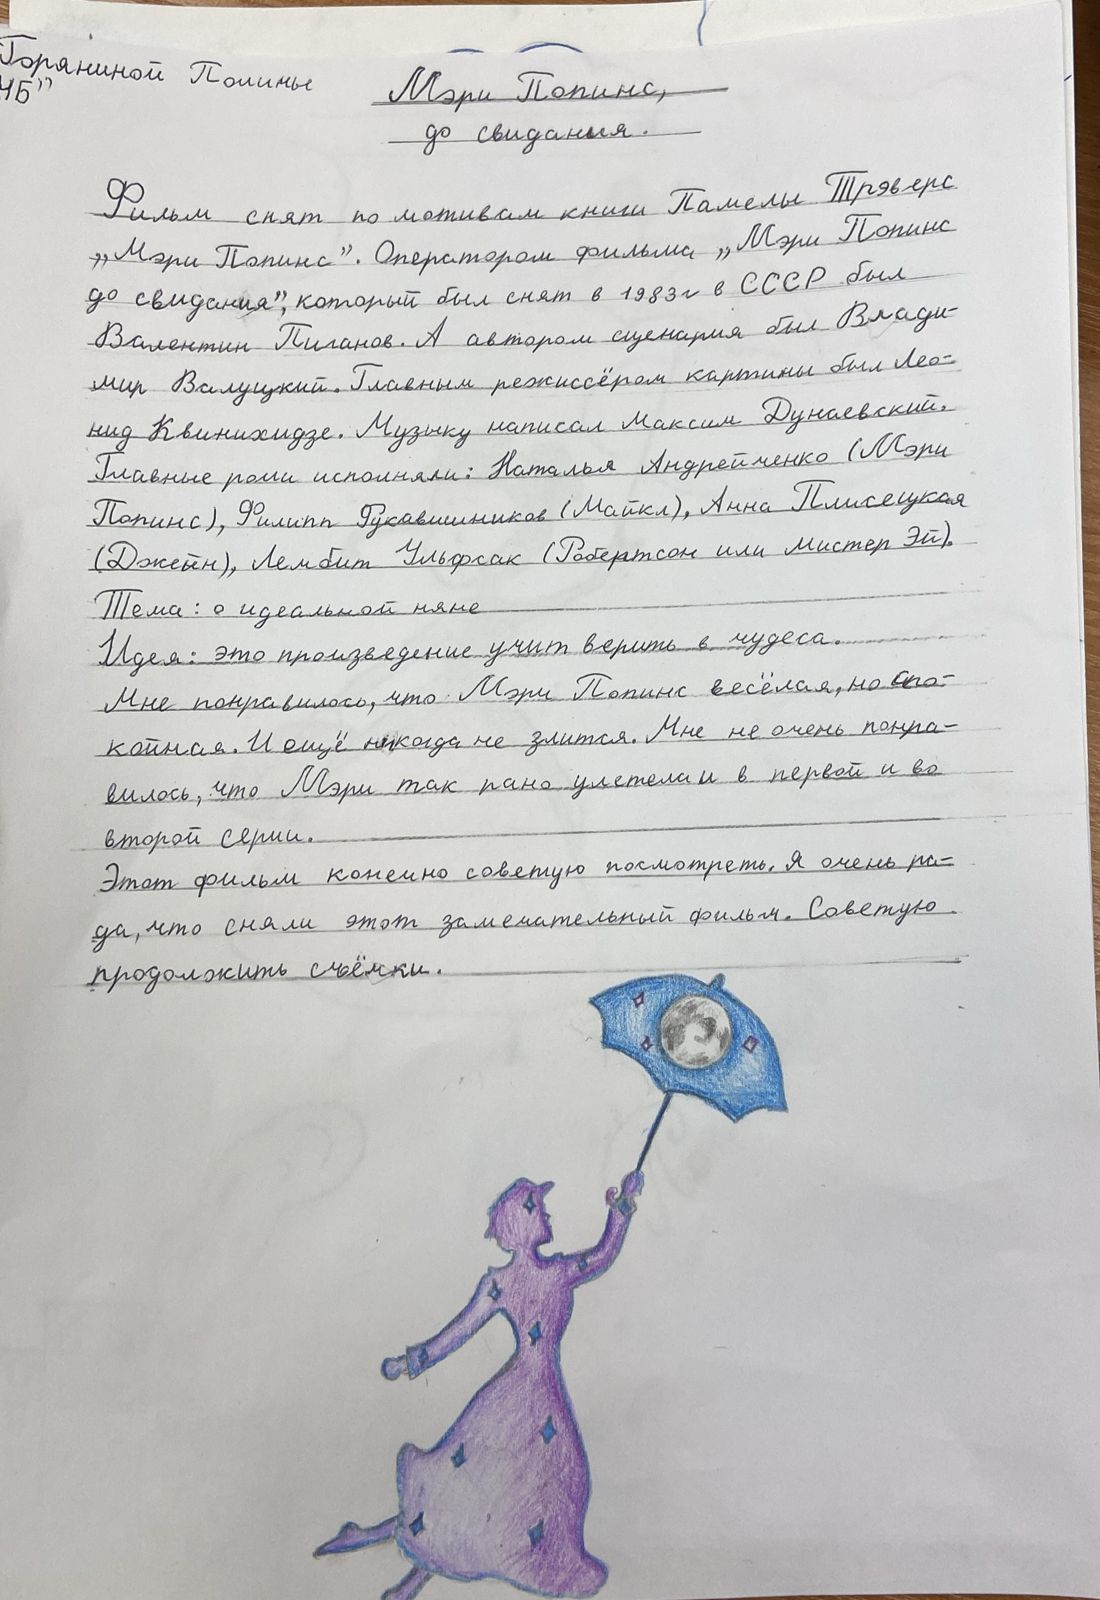 Горяниной Полины
4Б"
Мэри Попинс,
до свидания.
Фильм снят по мотивам книги Памелы Трэверс
„Мэри Попинс". Оператором фильма „Мэри Попинс
до свидания", который был снят в 1983г в СССР был
Валентин Пиганов. А автором сценария был Влади-
мир Валуцкий. Главным режиссёром картины был Лео-
нид Квинихидзе. Музыку написал Максим Дунаевский.
Главные роли исполняли: Наталья Андрейченко (Мэри
Попинс), Филипп Рукавишников (Майкл), Анна Плисецкая
(Джейн), Лембит Ульфсак (Робертсон или мистер Эй).
Тема: о идеальной няне
Идея: это произведение учит верить в чудеса.
Мне понравилось, что Мэри Попинс весёлая, но спо-
койная. И ещё никогда не злится. Мне не очень понра-
вилось, что Мэри так рано улетела и в первой и во
второй серии.
Этот фильм конечно советую посмотреть. Я очень ра-
да, что сняли этот замечательный фильм. Советую
продолжить съёмки.